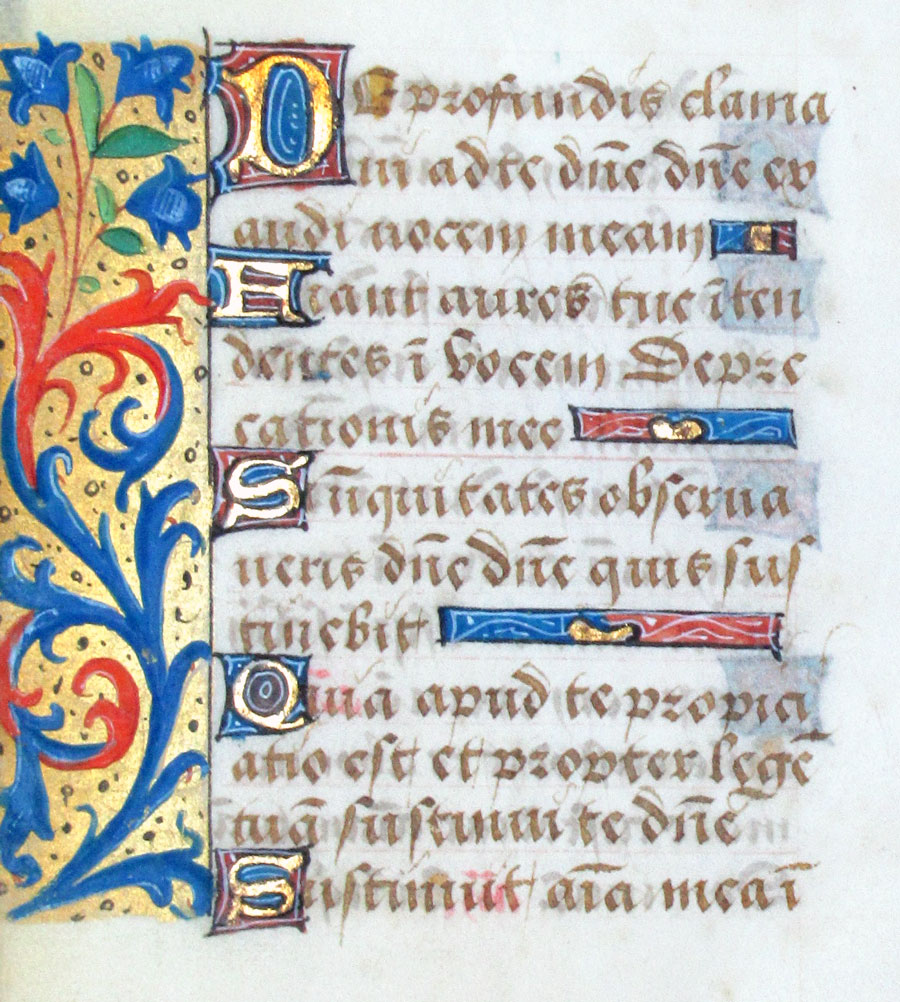 DE profundis clama
ui ad te dn̄e dn̄e ex
audi uocem meam
Fiāt aures tue īten
dentes ī vocem Depre
cationis mee
Si īiquitates obserua
ueris dn̄e dn̄e quis sus
tinebit
Quia apud te propicia
atio est et propter legē
tuā sustinui te dn̄e
Sustinuit aīa mea ī